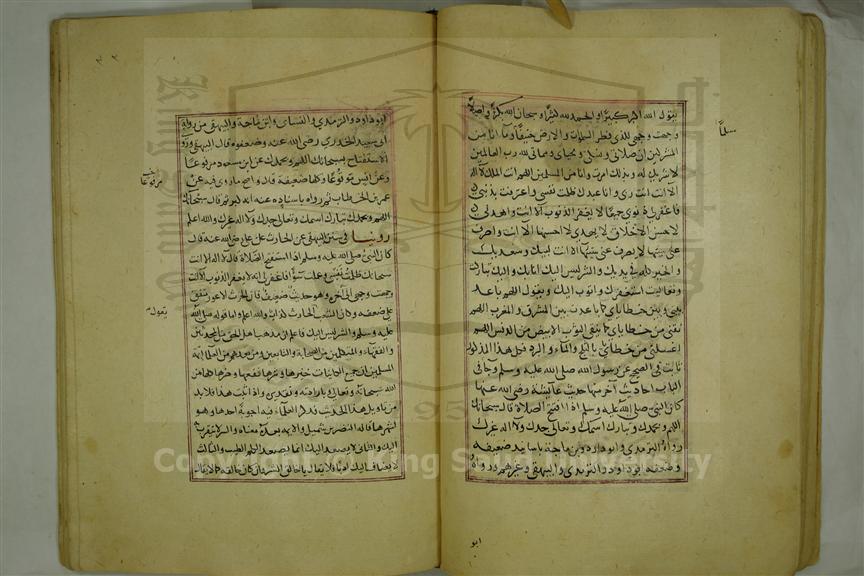 يقول الله اكبر كبيرا والحمد لله كثيرا وسبحان الله بكرة واصيلا
وجهت وجهي للذي فطر السموات والارض حنيفا وما انا من
المشركين ان صلاتي ونسكي ومحياي ومماتي لله رب العالمين
لا شريك له وبذلك امرت وانا من المسلمين اللهم انت الملك لا اله
الا انت انت ربي وانا عبدك ظلمت نفسي واعترفت بذنبي
فاغفر لي ذنوبي جميعا لا يغفر الذنوب الا انت واهدني
لاحسن الاخلاق لا يهدي لاحسنها الا انت واصرف
عني سيئها لا يصرف عني سيئها الا انت لبيك وسعديك
والخير كله في يديك والشر ليس اليك انا بك واليك تباركت
وتعاليت استغفرك واتوب اليك ويقول اللهم باعد
بيني وبين خطاياي كما باعدت بين المشرق والمغرب اللهم
نقني من خطاياي كما ينقى الثوب الابيض من الدنس اللهم
اغسلني من خطاياي بالثلج والماء والبرد فكل هذا المذكور
ثابت في الصحيح عن رسول الله صلى الله عليه وسلم وجا في
الباب احاديث اخر منها حديث عائشة رضي الله عنها
كان النبي صلى الله عليه وسلم اذا افتتح الصلاة قال سبحانك
اللهم وبحمدك وتبارك اسمك وتعالى جدك ولا اله غيرك
رواه الترمذي وابو داود وابن ماجة باسانيد ضعيفة
وضعفه ابو داود والترمذي والبيهقي وغيرهم ورواه
ابو
ابو داود والترمذي والنسائي وابن ماجة والبيهقي من رواية
ابي سعيد الخدري رضي الله عنه وضعفوه قال البيهقي وروي
الاستفتاح بسبحانك اللهم وبحمدك عن ابن مسعود مرفوعا
وعن انس مرفوعا وكلها ضعيفة قال واصح ما روي فيه عن
عمر بن الخطاب ثم رواه باسناده عنه انه كبر ثم قال سبحانك
اللهم وبحمدك تبارك اسمك وتعالى جدك ولا اله غيرك والله اعلم
روينا في سنن البيهقي عن الحارث عن علي رضي الله عنه قال
كان النبي صلى الله عليه وسلم اذا استفتح الصلاة قال لا اله الا انت
سبحانك ظلمت نفسي وعملت سوا فاغفر لي انه لا يغفر الذنوب الا انت
وجهت وجهي الى اخره وهو حديث ضعيف فان الحارث الاعور متفق
على ضعفه وكان الشعبي الحارث كذاب والله اعلم واما قوله صلى الله
عليه وسلم والشر ليس اليك فاعلم ان مذهب اهل الحق من المحدثين
والفقهاء والمتكلمين من الصحابة والتابعين ومن بعدهم من علماء
المسلمين ان جميع الكائنات خيرها وشرها نفعها وضرها كلها من
الله سبحانه وتعالى بارادته وتقديره واذا ثبت هذا فلا بد
من تاويل هذا الحديث فذكر العلماء فيه اجوبة احدها وهو
اشهرها قاله النضر بن شميل والايمة بعده معناه والشر لا يتقرب به
اليك والثاني لا يصعد اليك انما يصعد الكلم الطيب والثالث
لا يضاف اليك ادبا فلا يقال يا خالق الشر وان كان خالقه كما لا يقال
مرفوعا
يقول